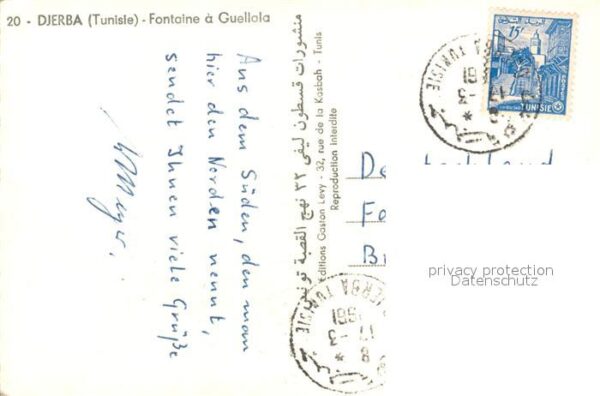 20 - DJERBA (Tunisie) - Fontaine à Guellala
Aus dem Süden, den man
hier den Norden nennt,
sendet Ihnen viele Grüße
Meyer.
منشورات قسطون ليفي ٣٢ نهج القصبة تونس
Editions Gaston Levy - 32, rue de la Kasbah - Tunis
Reproduction interdite
15F
TUNISIE
DJERBA TUNISIE
privacy protection
Datenschutz